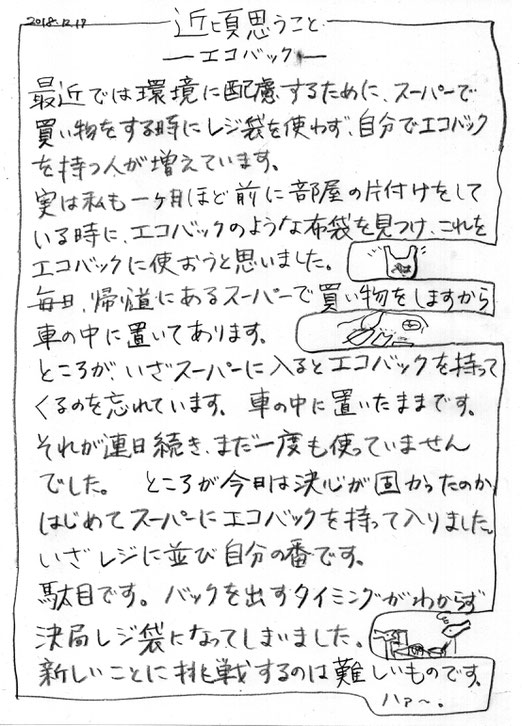 2018.12.17
近頃思うこと
―エコバック―
最近では環境に配慮するために、スーパーで
買い物をする時にレジ袋を使わず、自分でエコバック
を持つ人が増えています。
実は私も一ヶ月ほど前に部屋の片付けをして
いる時に、エコバックのような布袋を見つけ、これを
エコバックに使おうと思いました。
毎日、帰り道にあるスーパーで買い物をしますから
車の中に置いてあります。
ところが、いざスーパーに入るとエコバックを持って
くるのを忘れています。車の中に置いたままです。
それが連日続き、まだ一度も使っていません
でした。 ところが今日は決心が固かったのか
はじめてスーパーにエコバックを持って入りました。
いざレジに並び自分の番です。
駄目です。バックを出すタイミングがわからず
決局レジ袋になってしまいました。
新しいことに挑戦するのは難しいものです。
ハァ〜。